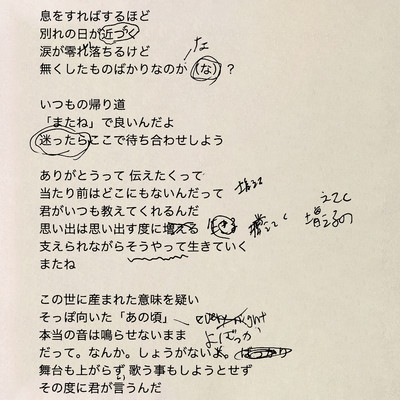 息をすればするほど
別れの日が近づく
涙が零れ落ちるけど
無くしたものばかりなのか(な)?
な
いつもの帰り道
「またね」で良いんだよ
迷ったらここで待ち合わせしよう
ありがとうって 伝えたくって
当たり前はどこにもないんだって
君がいつも教えてくれるんだ
思い出は思い出す度に増える
増えてく
えてく
増えるの
支えられながらそうやって生きていく
またね
この世に産まれた意味を疑い
そっぽ向いた「あの頃」
every night
本当の音は鳴らせないまま
だって。なんか。しょうがないよ。
舞台も上がらず、歌う事もしようとせず
その度に君が言うんだ